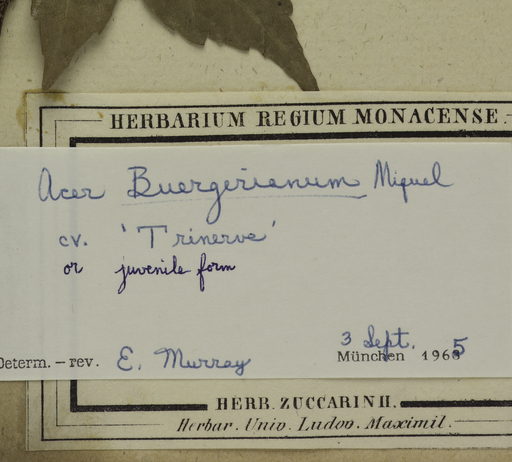 HERBARIUM REGIUM MONACENSE.
Acer Buergerianum Miquel
cv. 'Trinerve'
or juvenile form
3 Sept.
Determ. – rev. E. Murray München 1965
HERB. ZUCCARINII.
Herbar. Univ. Ludov. Maximil.